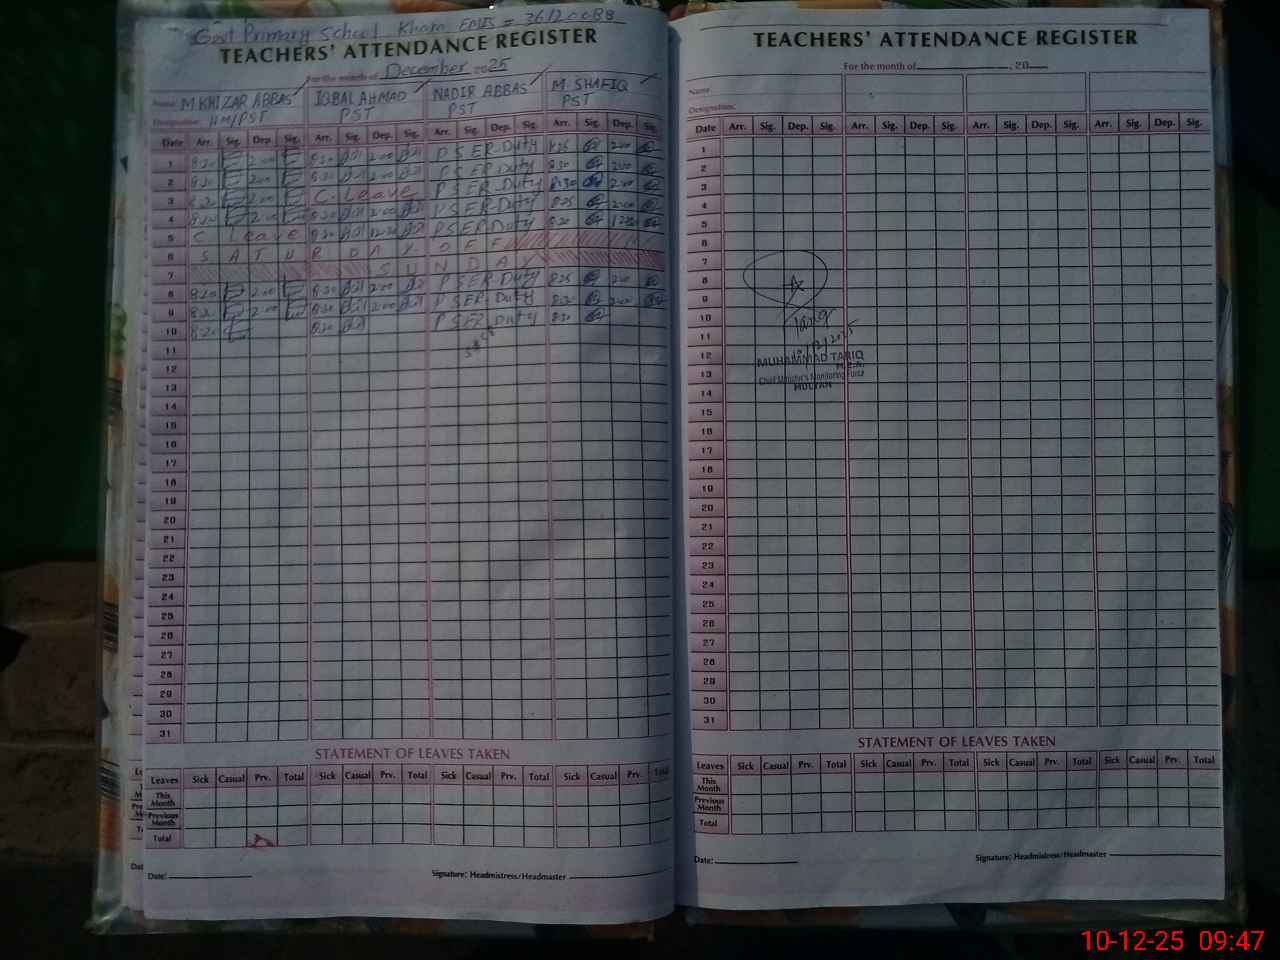 Govt Primary School Kham EMIS # 36120088
TEACHERS' ATTENDANCE REGISTER
For the month of December 2025
Name: M KHIZAR ABBAS IQBAL AHMAD NADIR ABBAS M. SHAFIQ
Designation: HM/PST PST PST PST
Date Arr. Sig. Dep. Sig. Arr. Sig. Dep. Sig. Arr. Sig. Dep. Sig. Arr. Sig. Dep. Sig.
1 8:20 2:00 8:20 2:00 PSER-Duty 8:25 2:00
2 8:20 2:00 8:20 2:00 PSER-Duty 8:30 2:00
3 8:20 2:00 C. Leave PSER-Duty 8:30 2:00
4 8:20 2:00 8:20 2:00 PSER-Duty 8:25 2:00
5 C Leave 8:20 12:30 PSER-Duty 8:20
6 SATURDAY OFF
7 SUNDAY
8 8:20 2:00 8:20 2:00 PSER-Duty 8:25 2:00
9 8:20 2:00 8:20 2:00 PSER-Duty 8:20 2:00
10 8:20 8:20 PSER Duty 8:20
11
12
13
14
15
16
17
18
19
20
21
22
23
24
25
26
27
28
29
30
31
STATEMENT OF LEAVES TAKEN
Leaves Sick Casual Prv. Total Sick Casual Prv. Total Sick Casual Prv. Total Sick Casual Prv. Total
This Month
Previous Month
Total
Date:
Signature: Headmistress/Headmaster
TEACHERS' ATTENDANCE REGISTER
For the month of , 20
Name
Designation:
Date Arr. Sig. Dep. Sig. Arr. Sig. Dep. Sig. Arr. Sig. Dep. Sig. Arr. Sig. Dep. Sig.
1
2
3
4
5
6
7
8
9
10
11
12
13
14
15
16
17
18
19
20
21
22
23
24
25
26
27
28
29
30
31
Tariq
10/12/2025
MUHAMMAD TARIQ
M.E.A.
Chief Minister's Monitoring Force
MULTAN
STATEMENT OF LEAVES TAKEN
Leaves Sick Casual Prv. Total Sick Casual Prv. Total Sick Casual Prv. Total Sick Casual Prv. Total
This Month
Previous Month
Total
Date:
Signature: Headmistress/Headmaster
10-12-25 09:47